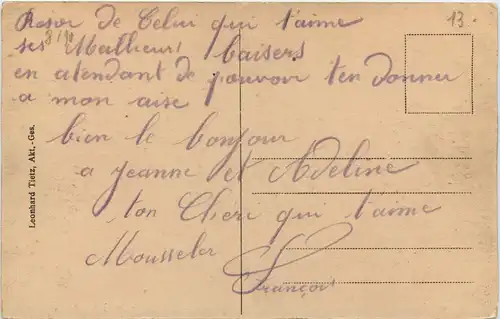 Resoi de Celui qui t'aime
ses Malheurs baisers
en atendant de pouvoir ten donner
a mon aise
bien le bonjour
a jeanne et Adeline
ton Cheri qui t'aime
François
Leonhard Tietz, Akt.-Ges.
13.